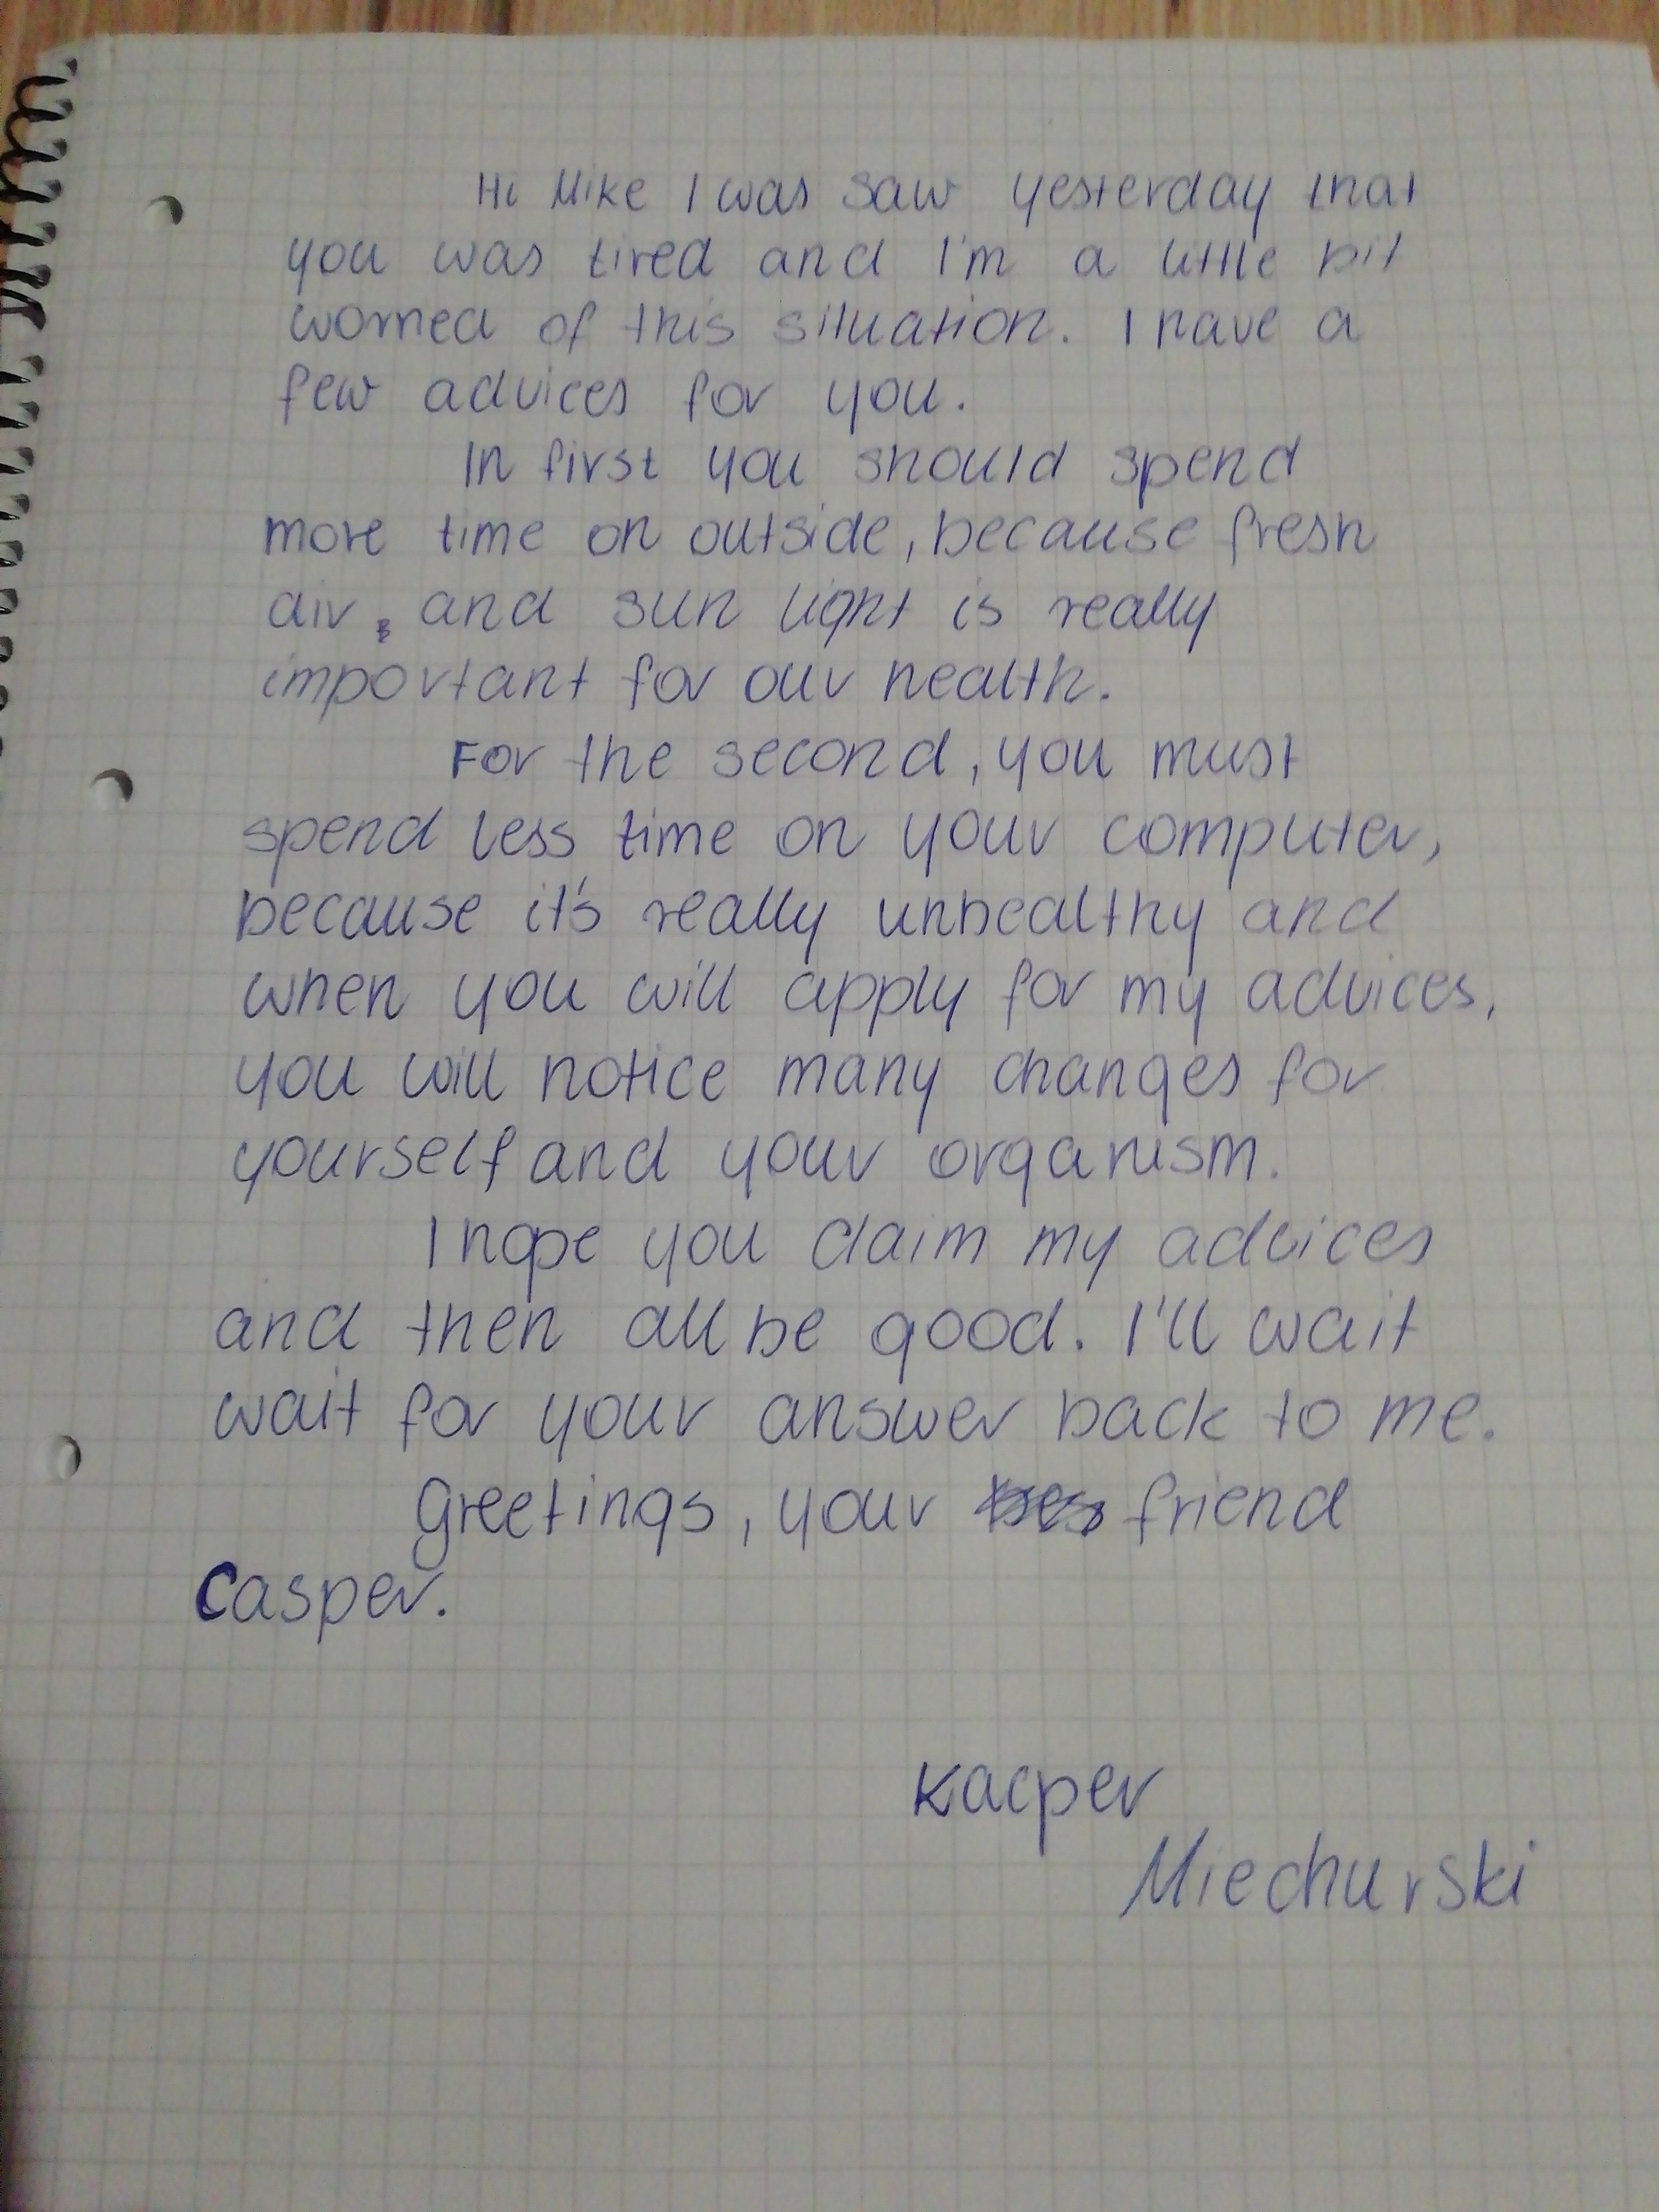 Hi Mike I was saw yesterday that
you was tired and I'm a little bit
worried of this situation. I have a
few advices for you.
In first you should spend
more time on outside, because fresh
air, and sun light is really
important for our health.
For the second, you must
spend less time on your computer,
because it's really unhealthy and
when you will apply for my advices,
you will notice many changes for
yourself and your organism.
I hope you claim my advices
and then all be good. I'll wait
wait for your answer back to me.
Greetings, your friend
Casper.
Kacper
Miechurski